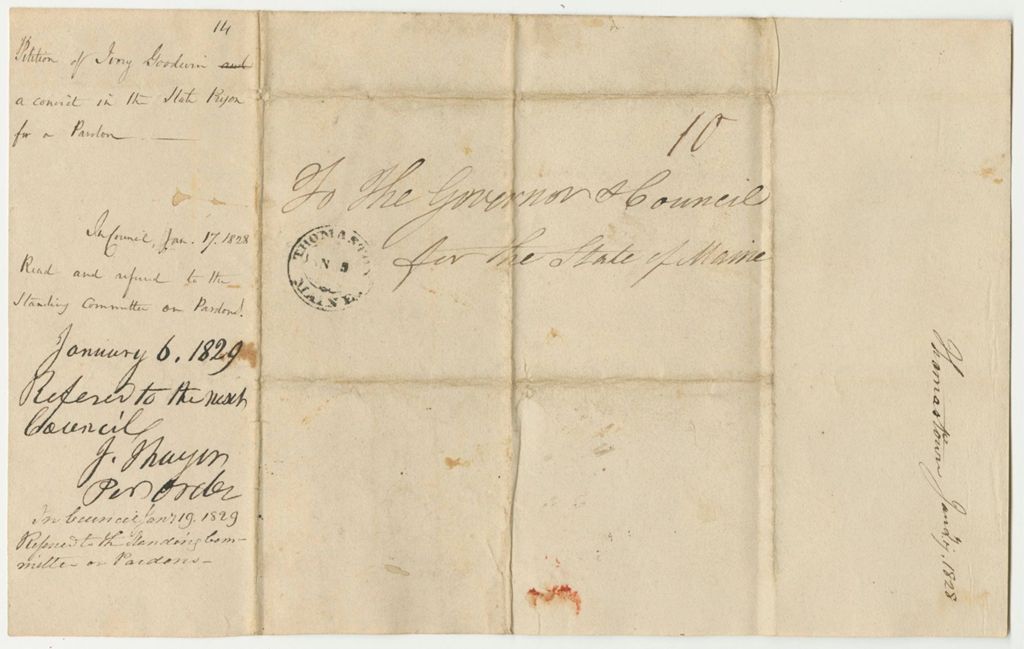 14
Petition of Ivory Goodwin and
a convict in the State Prison
for a Pardon
In Council, Jan. 17. 1828
Read and referred to the
Standing Committee on Pardons.
January 6. 1829
Refered to the next
Council
J. Thayer
Per Order
In Council Jany 19. 1829
Refered to the Standing Com-
mittee on Pardons-
10
To The Governor & Council
for the State of Maine
THOMASTON
JAN 9
MAINE
Thomastown Jany. 1828